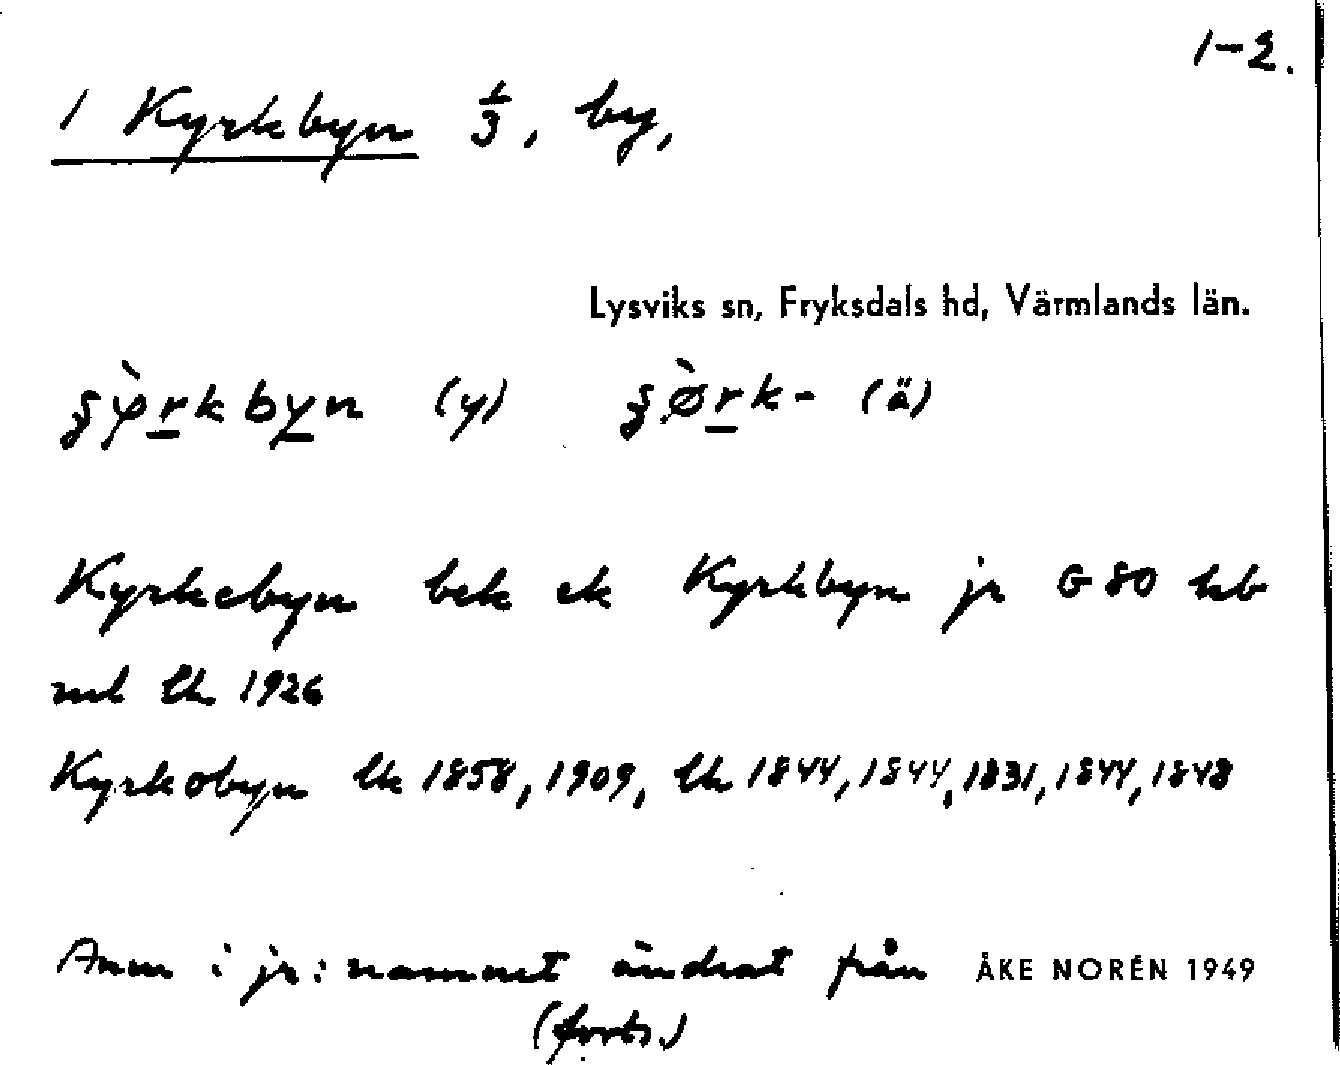 1-2.
1 Kyrkbyn 1/3, by,
Lysviks sn, Fryksdals hd, Värmlands län.
(y) (ä)
Kyrkebyn bek ek Kyrkbyn jr G 80 hb
1926
Kyrkobyn lk 1858, 1909, lh 1844, 1844, 1831, 1844, 1848
Anm i jr: namnet ändrat från
ÅKE NORÉN 1949
(forts.)